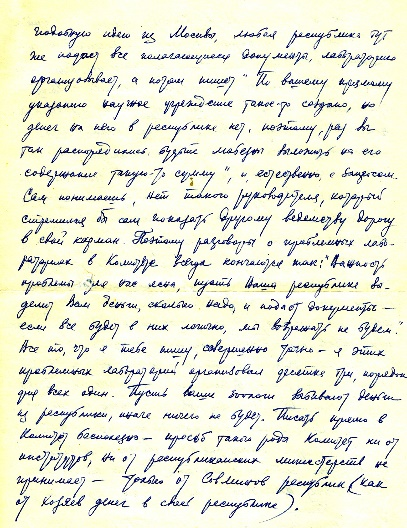 подобную идею из Москвы, любая республика тут
же подает все полагающиеся документы, лабораторию
организовывает, а потом пишет "По вашему прямому
указанию научное учреждение такое-то создано, но
денег на него в республике нет, поэтому, раз вы
так распорядились, будьте любезны выложить на его
содержание такую-то сумму", и, естественно, с запросом.
Сам понимаешь, нет такого руководителя, который
стремился бы сам показать другому ведомству дорогу
в свой карман. Поэтому разговоры о проблемных лабо-
раториях в Комитете всегда кончаются так: "Важность
проблемы для нас ясна, пусть Ваша республика вы-
делит Вам деньги, сколько надо, и подает документы —
если все будет в них логично, мы возражать не будем."
Все то, что я тебе пишу, совершенно точно — я этих
проблемных лабораторий организовал десятка три, порядок
для всех один. Пусть ваши биологи выбивают деньги
из республики, иначе ничего не будет. Писать прямо в
Комитет бесполезно — просьб такого рода Комитет ни от
институтов, ни от республиканских министерств не
принимает — только от Совминов республик (как
от хозяев денег в своей республике).